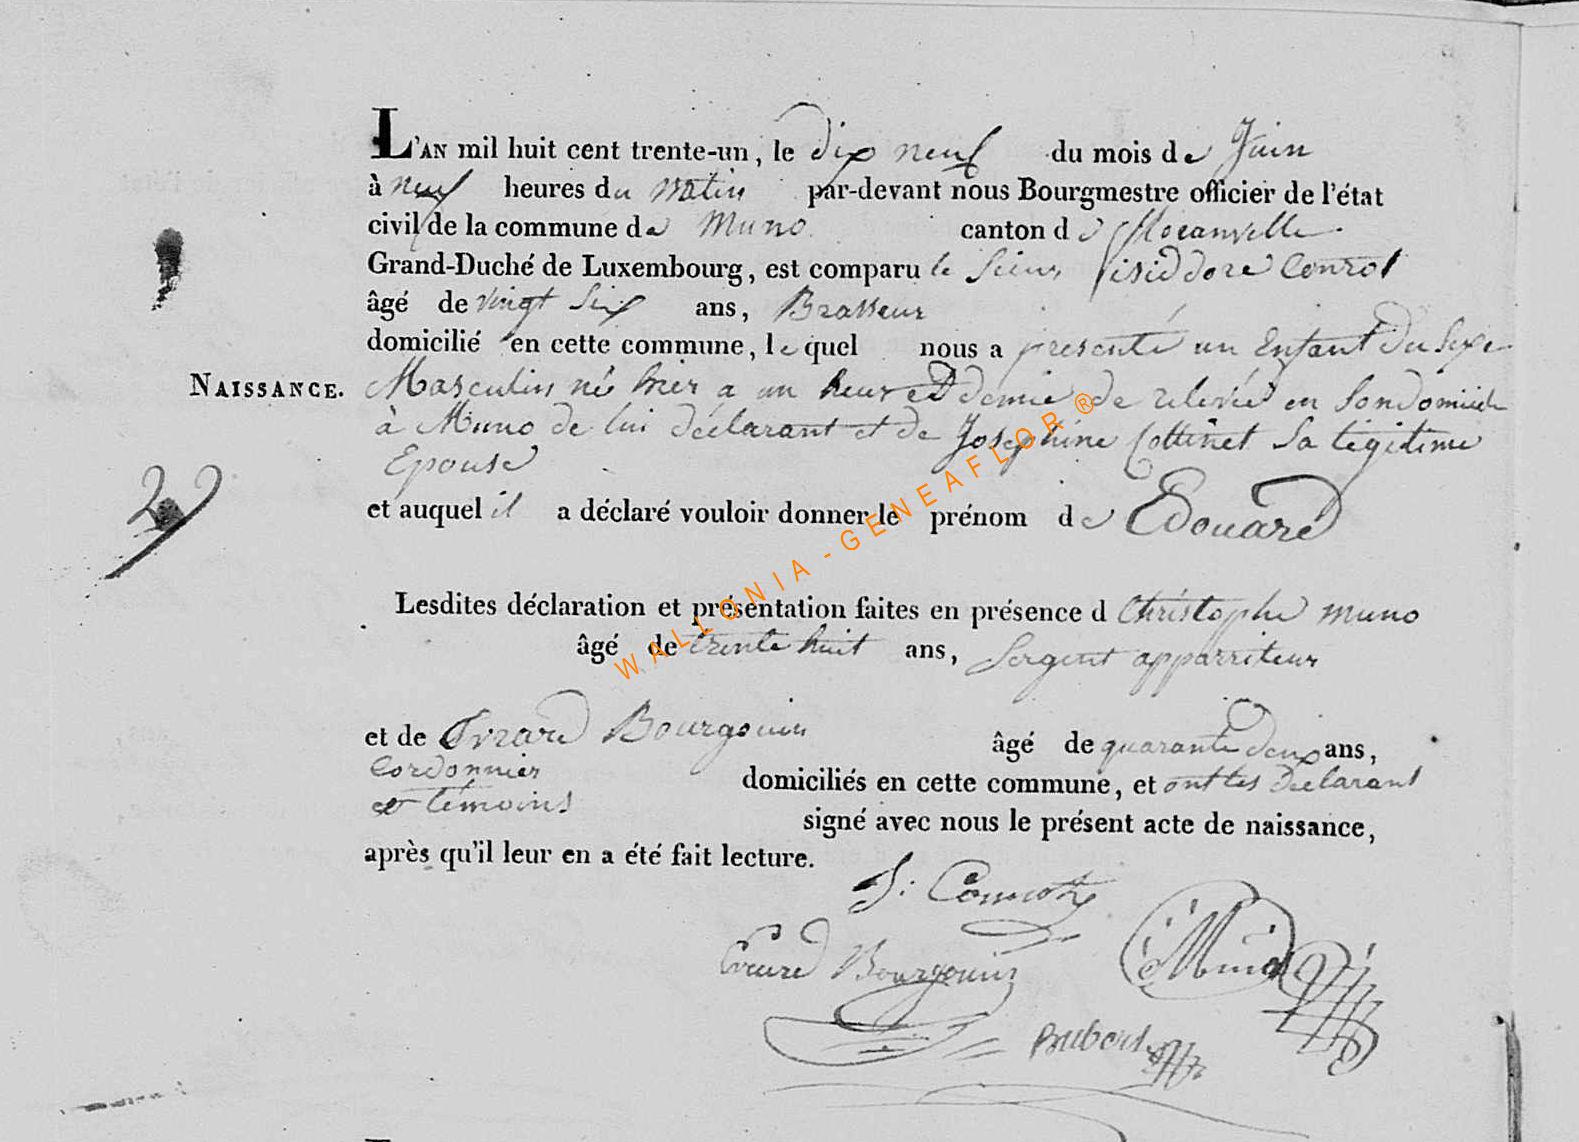 L'AN mil huit cent trente-un, le dix neuf du mois de Juin
à neuf heures du matin par-devant nous Bourgmestre officier de l'état
civil de la commune de Muno canton de
Grand-Duché de Luxembourg, est comparu le Sieur isiddore Conrot
âgé de vingt Six ans, Brasseur
domicilié en cette commune, lequel nous a presenté un Enfant du Sexe
NAISSANCE. Masculin né hier a un heur et demie de relevée en Son domicile
à Muno de lui déclarant et de Josephine Cottinet Sa légitime
Epouse
29
et auquel il a déclaré vouloir donner le prénom de Edouard
Lesdites déclaration et présentation faites en présence d Christophe Muno
âgé de trente huit ans, Sergent apparriteur
et de Evrard Bourgouin âgé de quarante deux ans,
Cordonnier domiciliés en cette commune, et ont les Declarant
et temoins signé avec nous le présent acte de naissance,
après qu'il leur en a été fait lecture.
J: Conrot
Evrard Bourgouin Muno
WALLONIA - GENEAFLOR ®